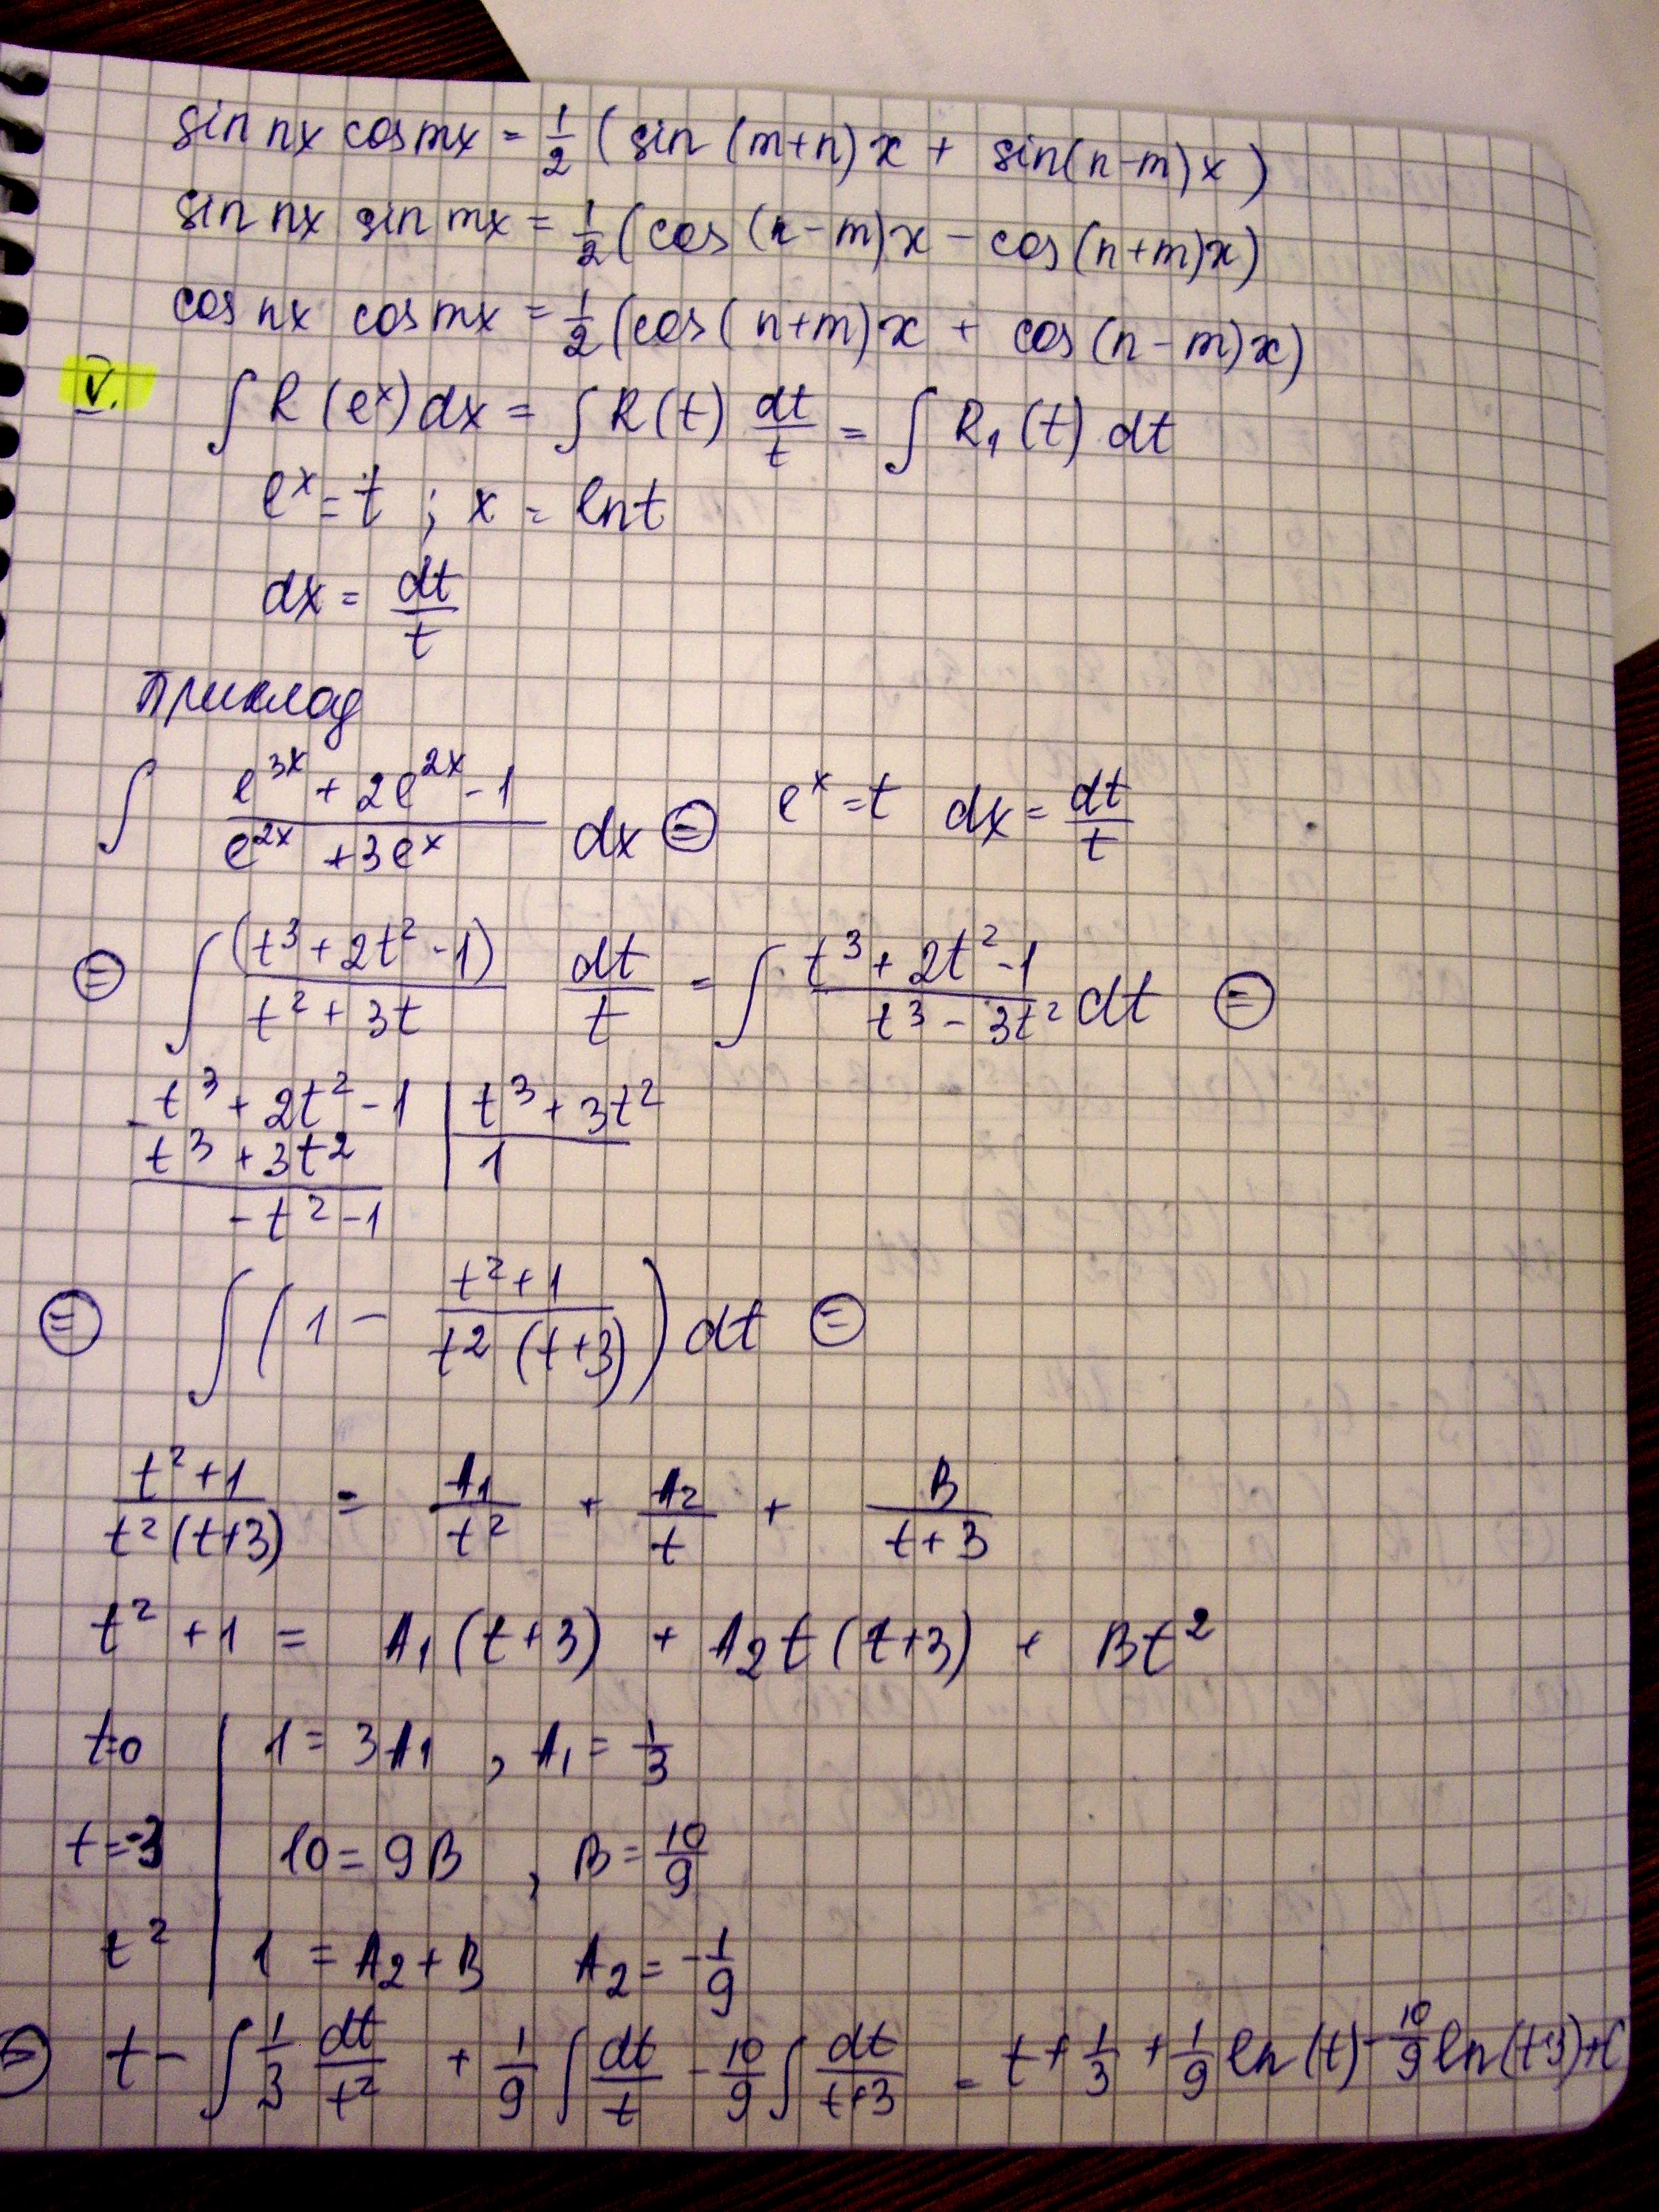 sin nx cos mx = 1/2 ( sin (m+n) x + sin(n-m) x )
sin nx sin mx = 1/2 (cos (n-m)x - cos (n+m)x)
cos nx cos mx = 1/2 (cos ( n+m) x + cos (n-m)x)
V. ∫ R (e^x) dx = ∫ R(t) dt/t = ∫ R₁ (t) dt
e^x = t ; x = ln t
dx = dt/t
Приклад
∫ (e^3x + 2e^2x - 1)/(e^2x + 3e^x) dx ⊜ e^x = t dx = dt/t
⊜ ∫ (t³ + 2t² - 1)/(t² + 3t) dt/t = ∫ (t³ + 2t² - 1)/(t³ - 3t²) dt ⊜
- t³ + 2t² - 1 | t³ + 3t²
t³ + 3t² | 1
- t² - 1
⊜ ∫ ( 1 - (t² + 1)/(t² (t+3)) ) dt ⊜
(t² + 1)/(t² (t+3)) = A₁/t² + A₂/t + B/(t+3)
t² + 1 = A₁ (t+3) + A₂ t (t+3) + Bt²
t=0 | 1 = 3A₁ , A₁ = 1/3
t=-3 | 10 = 9B , B = 10/9
t² | 1 = A₂ + B A₂ = -1/9
⊜ t - ∫ 1/3 dt/t² + 1/9 ∫ dt/t - 10/9 ∫ dt/(t+3) = t + 1/3 + 1/9 ln (t) - 10/9 ln (t+3) + C